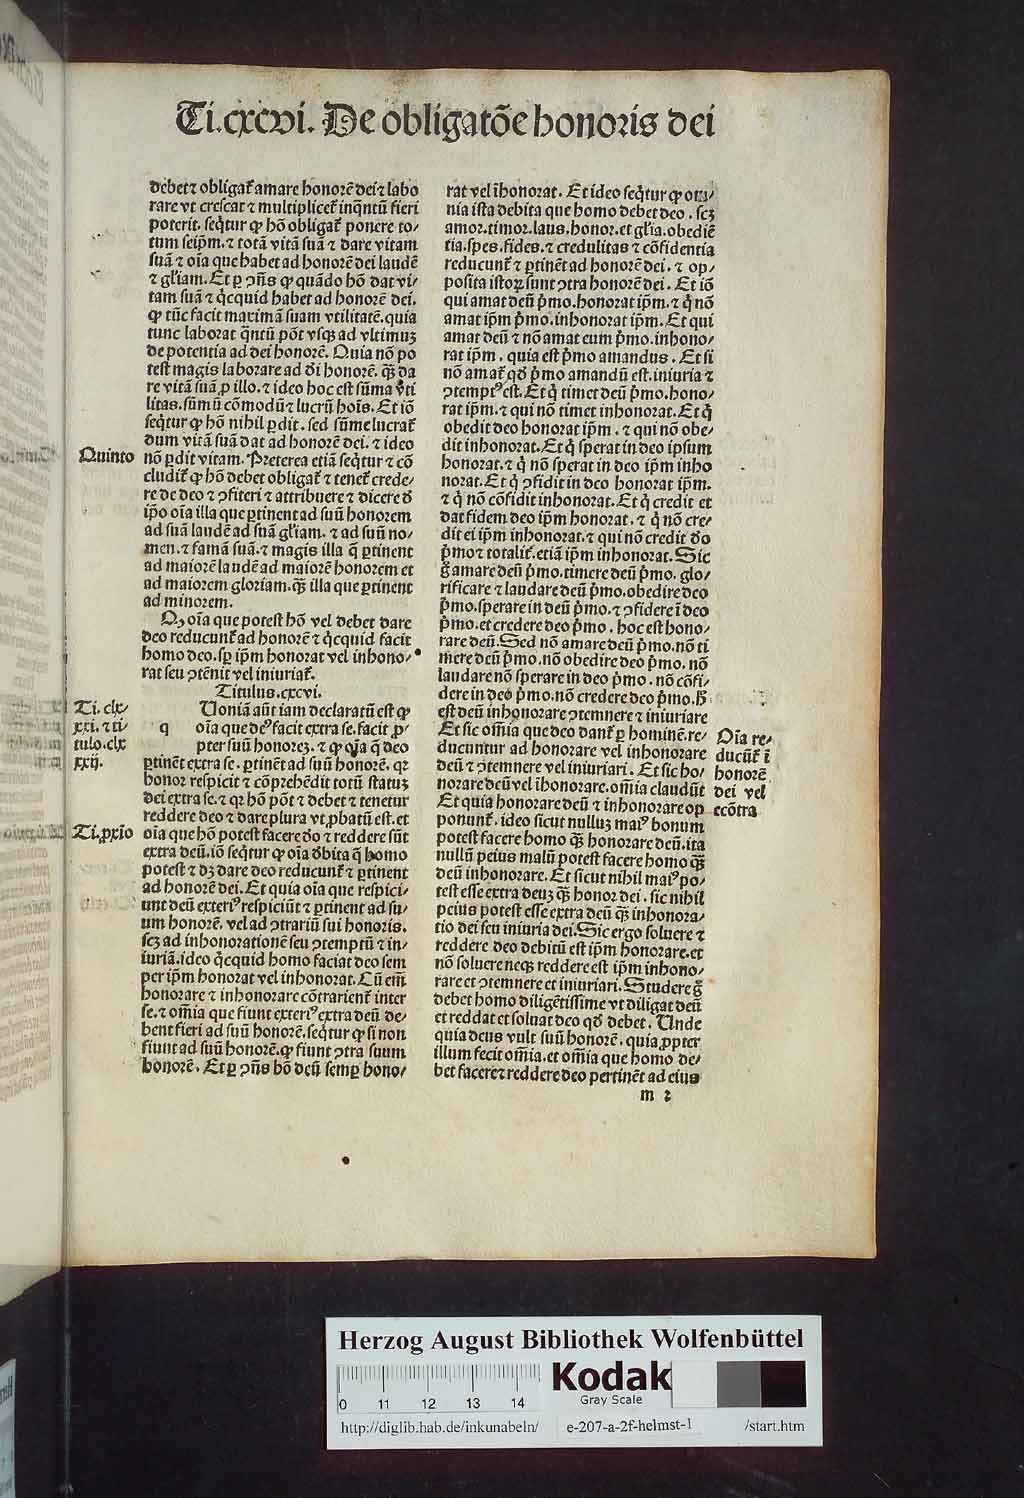 Ti.cxcvi. De obligatõe honoris dei
debet ⁊ obligat᷑ amare honorẽ dei ⁊ labo
rare vt crescat ⁊ multiplicet᷑ inq̃ntũ fieri
poterit. seq̃tur ꝙ hõ obligat᷑ ponere to/
tum seip̃m. ⁊ totã vitã suã ⁊ dare vitam
suã ⁊ oĩa que habet ad honorẽ dei laudẽ
⁊ gl̃iam. Et ꝑ ꝯñs ꝙ quãdo hõ dat vi/
tam suã ⁊ q̃cquid habet ad honorẽ dei.
ꝙ tũc facit maximã suam vtilitatẽ. quia
tunc laborat q̃ntũ põt vsqꝫ ad vltimuꝫ
de potentia ad dei honorẽ. Quia nõ po
test magis laborare ad d̃i honorẽ. q̃ꝫ da
re vitã suã ꝓ illo. ⁊ ideo hoc est sũma vti
litas. sũmũ cõmodũ ⁊ lucrũ hoĩs. Et iõ
seq̃tur ꝙ hõ nihil ꝑdit. sed sũme lucrat᷑
dum vitã suã dat ad honorẽ dei. ⁊ ideo
Quinto
nõ ꝑdit vitam. Preterea etiã seq̃tur ⁊ cõ
cludit᷑ ꝙ hõ debet obligat᷑ ⁊ tenet᷑ crede/
re de deo ⁊ ꝯfiteri ⁊ attribuere ⁊ dicere d̃
ip̃o oĩa illa que ꝑtinent ad suũ honorem
ad suã laudẽ ad suã gl̃iam. ⁊ ad suũ no/
men. ⁊ famã suã. ⁊ magis illa q̃ ꝑtinent
ad maiorẽ laudẽ ad maiorẽ honorem et
ad maiorem gloriam. q̃ꝫ illa que ꝑtinent
ad minorem.
Qꝫ oĩa que potest hõ vel debet dare
deo reducunt᷑ ad honorẽ ⁊ q̃cquid facit
homo deo. sꝑ ip̃m honorat vel inhono/
rat seu ꝯtẽnit vel iniuriat᷑.
Titulus. cxcvi.
Ti. clx/
xxi. ⁊ ti/
tulo. clx
xxij.
q
Uoniã aũt iam declaratũ est ꝙ
oĩa que deꝰ facit extra se. facit ꝓ/
pter suũ honoreꝫ. ⁊ ꝙ oĩa q̃ deo
ꝑtinẽt extra se. ꝑtinent ad suũ honorẽ. qꝛ
honor respicit ⁊ cõprehẽdit totũ statuꝫ
dei extra se. ⁊ qꝛ hõ põt ⁊ debet ⁊ tenetur
reddere deo ⁊ dare plura vt ꝓbatũ est. et
Ti. ꝓxio
oĩa que hõ potest facere d̃o ⁊ reddere sũt
extra deũ. iõ seq̃tur ꝙ oĩa d̃bita q̃ homo
potest ⁊ dꝫ dare deo reducunt᷑ ⁊ ꝑtinent
ad honorẽ dei. Et quia oĩa que respici/
unt deũ exteriꝰ respiciũt ⁊ ꝑtinent ad su/
um honorẽ. vel ad ꝯtrariũ sui honoris.
scꝫ ad inhonorationẽ seu ꝯtemptũ ⁊ in/
iuriã. ideo q̃cquid homo faciat deo sem
per ip̃m honorat vel inhonorat. Cũ em̃
honorare ⁊ inhonorare cõtrarient᷑ inter
se. ⁊ om̃ia que fiunt exteriꝰ extra deũ de/
bent fieri ad suũ honorẽ. seq̃tur ꝙ si non
fiunt ad suũ honorẽ. ꝙ fiunt ꝯtra suum
honorẽ. Et ꝑ ꝯñs hõ deũ semꝑ hono/
rat vel ĩhonorat. Et ideo seq̃tur ꝙ om/
nia ista debita que homo debet deo. scꝫ
amor. timor. laus. honor. et gl̃ia. obediẽ
tia. spes. fides. ⁊ credulitas ⁊ cõfidentia
reducunt᷑ ⁊ ꝑtinẽt ad honorẽ dei. ⁊ op/
posita istoꝝ sunt ꝯtra honorẽ dei. Et iõ
qui amat deũ p̃mo. honorat ip̃m. ⁊ q̃ nõ
amat ip̃m p̃mo. inhonorat ip̃m. Et qui
amat deũ ⁊ nõ amat eum p̃mo. inhono/
rat ip̃m. quia est p̃mo amandus. Et si
nõ amat᷑ qd̃ p̃mo amandũ est. iniuria ⁊
ꝯtemptꝰ est. Et q̃ timet deũ p̃mo. hono/
rat ip̃m. ⁊ qui nõ timet inhonorat. Et q̃
obedit deo honorat ip̃m. ⁊ qui nõ obe/
dit inhonorat. Et q̃ sperat in deo ipsum
honorat. ⁊ q̃ nõ sperat in deo ip̃m inho
norat. Et q̃ ꝯfidit in deo honorat ip̃m.
⁊ q̃ nõ cõfidit inhonorat. Et q̃ credit et
dat fidem deo ip̃m honorat. ⁊ q̃ nõ cre/
dit ei ip̃m inhonorat. ⁊ qui nõ credit d̃o
p̃mo ⁊ totalit᷑. etiã ip̃m inhonorat. Sic
g̃ amare deũ p̃mo. timere deũ p̃mo. glo/
rificare ⁊ laudare deũ p̃mo. obedire deo
p̃mo. sperare in deũ p̃mo. ⁊ ꝯfidere ĩ deo
p̃mo. et credere deo p̃mo. hoc est hono/
rare deũ. Sed nõ amare deũ p̃mo. nõ ti
mere deũ p̃mo. nõ obedire deo p̃mo. nõ
laudare nõ sperare in deo p̃mo. nõ cõfi/
dere in deo p̃mo. nõ credere deo p̃mo. h̃
est deũ inhonorare ꝯtemnere ⁊ iniuriare
Et sic om̃ia que deo dant᷑ ꝑ hominẽ. re/
ducuntur ad honorare vel inhonorare
deũ ⁊ ꝯtemnere vel iniuriari. Et sic ho/
norare deũ vel ĩhonorare. om̃ia claudũt᷑
Et quia honorare deũ ⁊ inhonorare op
ponunt᷑. ideo sicut nulluꝫ maiꝰ bonum
potest facere homo q̃ꝫ honorare deũ. ita
nullũ peius malũ potest facere homo q̃ꝫ
deũ inhonorare. Et sicut nihil maiꝰ po/
test esse extra deuꝫ q̃ꝫ honor dei. sic nihil
peius potest esse extra deũ q̃ꝫ inhonora/
tio dei seu iniuria dei. Sic ergo soluere ⁊
reddere deo debitũ est ip̃m honorare. et
nõ soluere neqꝫ reddere est ip̃m inhono/
rare et ꝯtemnere et iniuriari. Studere g̃
debet homo diligẽtissime vt diligat deũ
et reddat et soluat deo qd̃ debet. Unde
quia deus vult suũ honorẽ. quia ꝓpter
illum fecit om̃ia. et om̃ia que homo de/
bet facere ⁊ reddere deo pertinẽt ad eius
Oĩa re/
ducũt᷑ ĩ
honorẽ
dei vel
ecõtra
m 2
Herzog August Bibliothek Wolfenbüttel
0 11 12 13 14
Kodak
Gray Scale
http://diglib.hab.de/inkunabeln/ e-207-a-2f-helmst-1 /start.htm